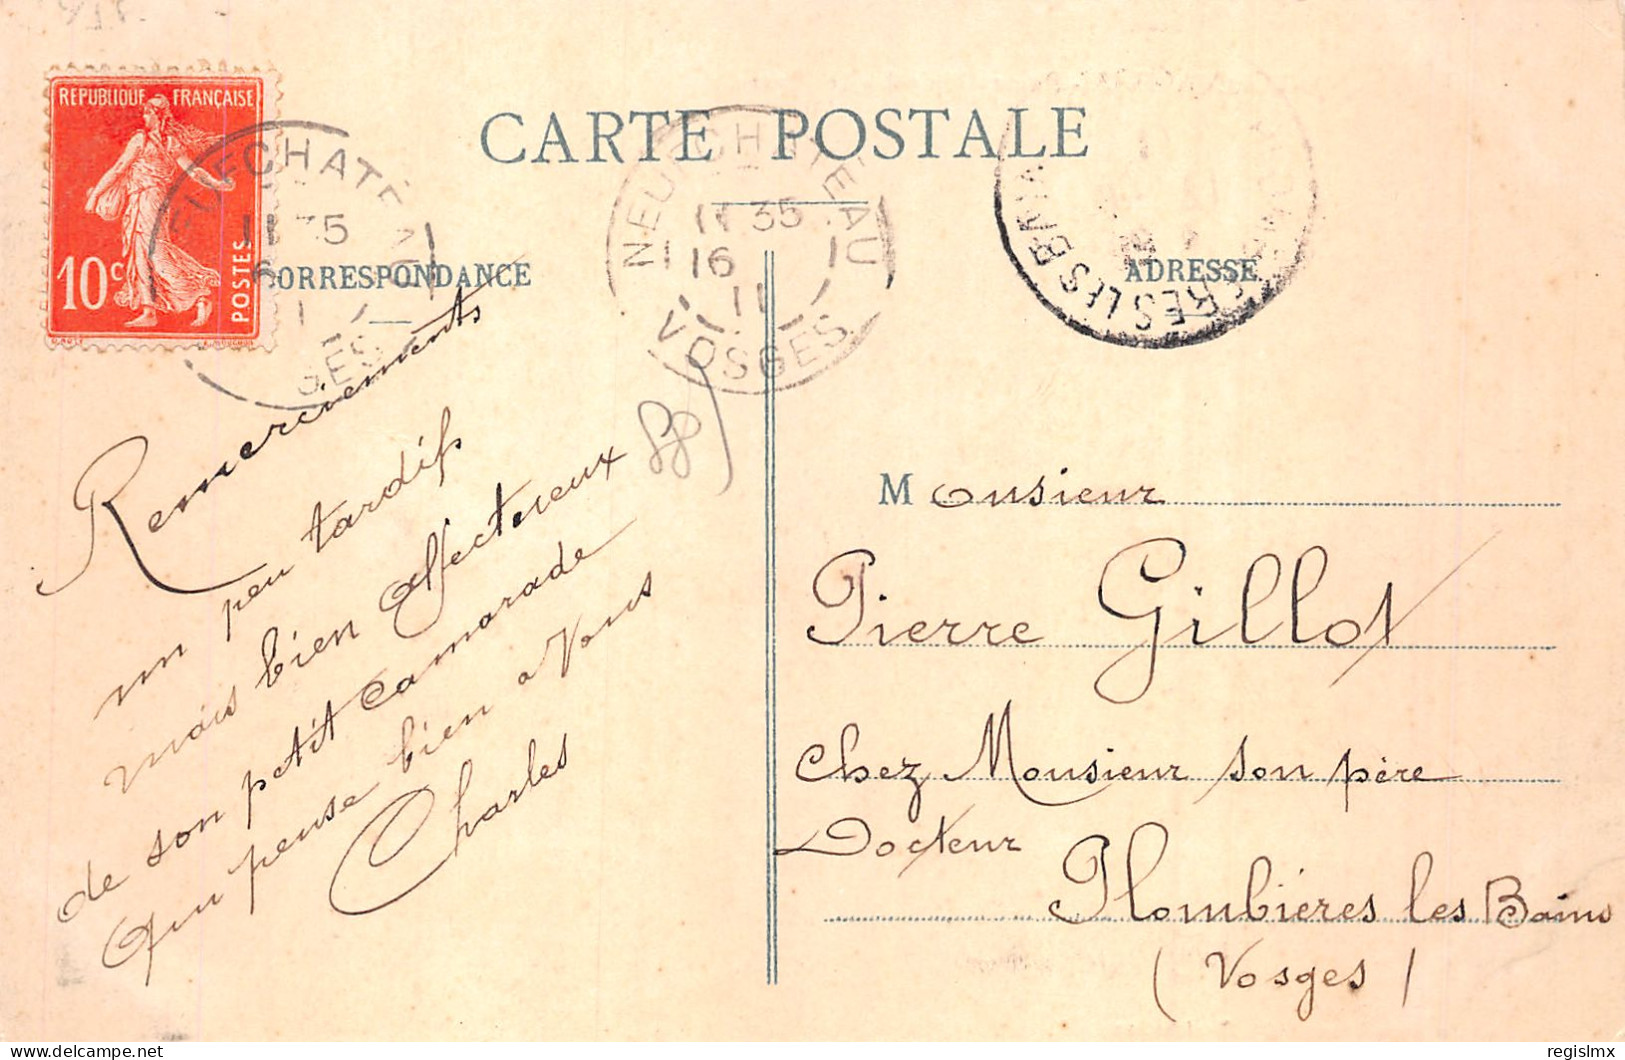 REPUBLIQUE FRANÇAISE
10c POSTES
CARTE POSTALE
NEUFCHATEAU
11 35
16
11
VOSGES
CORRESPONDANCE
ADRESSE
Remerciements
un peu tardifs
mais bien affectueux
de son petit camarade
qui pense bien à Vous
Charles
Monsieur
Pierre Gillot
chez Monsieur son père
Docteur
Plombières les Bains
(Vosges)
delcampe.net
regislmx